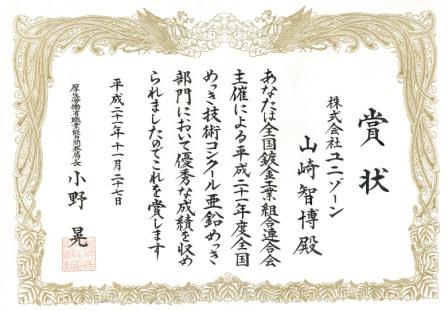 賞状
株式会社ユニゾーン
山崎智博殿
あなたは全国鍍金工業組合連合会
主催による平成二十一年度全国
めっき技術コンクール亜鉛めっき
部門において優秀な成績を収め
られましたのでこれを賞します
平成二十一年十一月二十七日
厚生労働省職業能力開発局長
小野晃